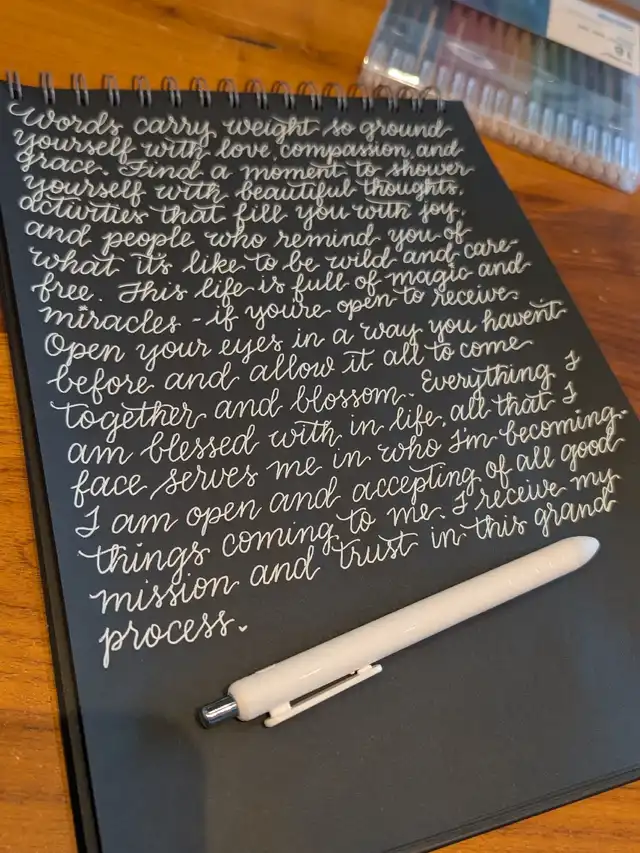 Words carry weight so ground
yourself with love, compassion, and
grace. Find a moment to shower
yourself with beautiful thoughts,
activities that fill you with joy,
and people who remind you of
what it's like to be wild and care-
free. This life is full of magic and
miracles - if you're open to receive.
Open your eyes in a way you haven't
before and allow it all to come
together and blossom. Everything I
am blessed with in life, all that I
face, serves me in who I'm becoming.
I am open and accepting of all good
things coming to me. I receive my
mission and trust in this grand
process.